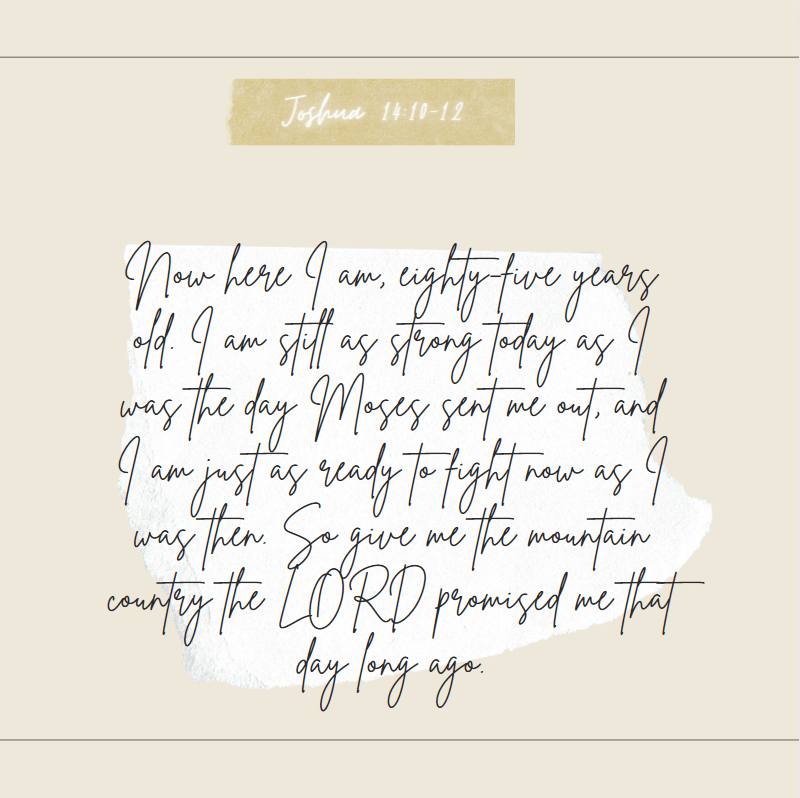 Joshua 14:10-12
Now here I am, eighty-five years
old. I am still as strong today as I
was the day Moses sent me out, and
I am just as ready to fight now as I
was then. So give me the mountain
country the LORD promised me that
day long ago.